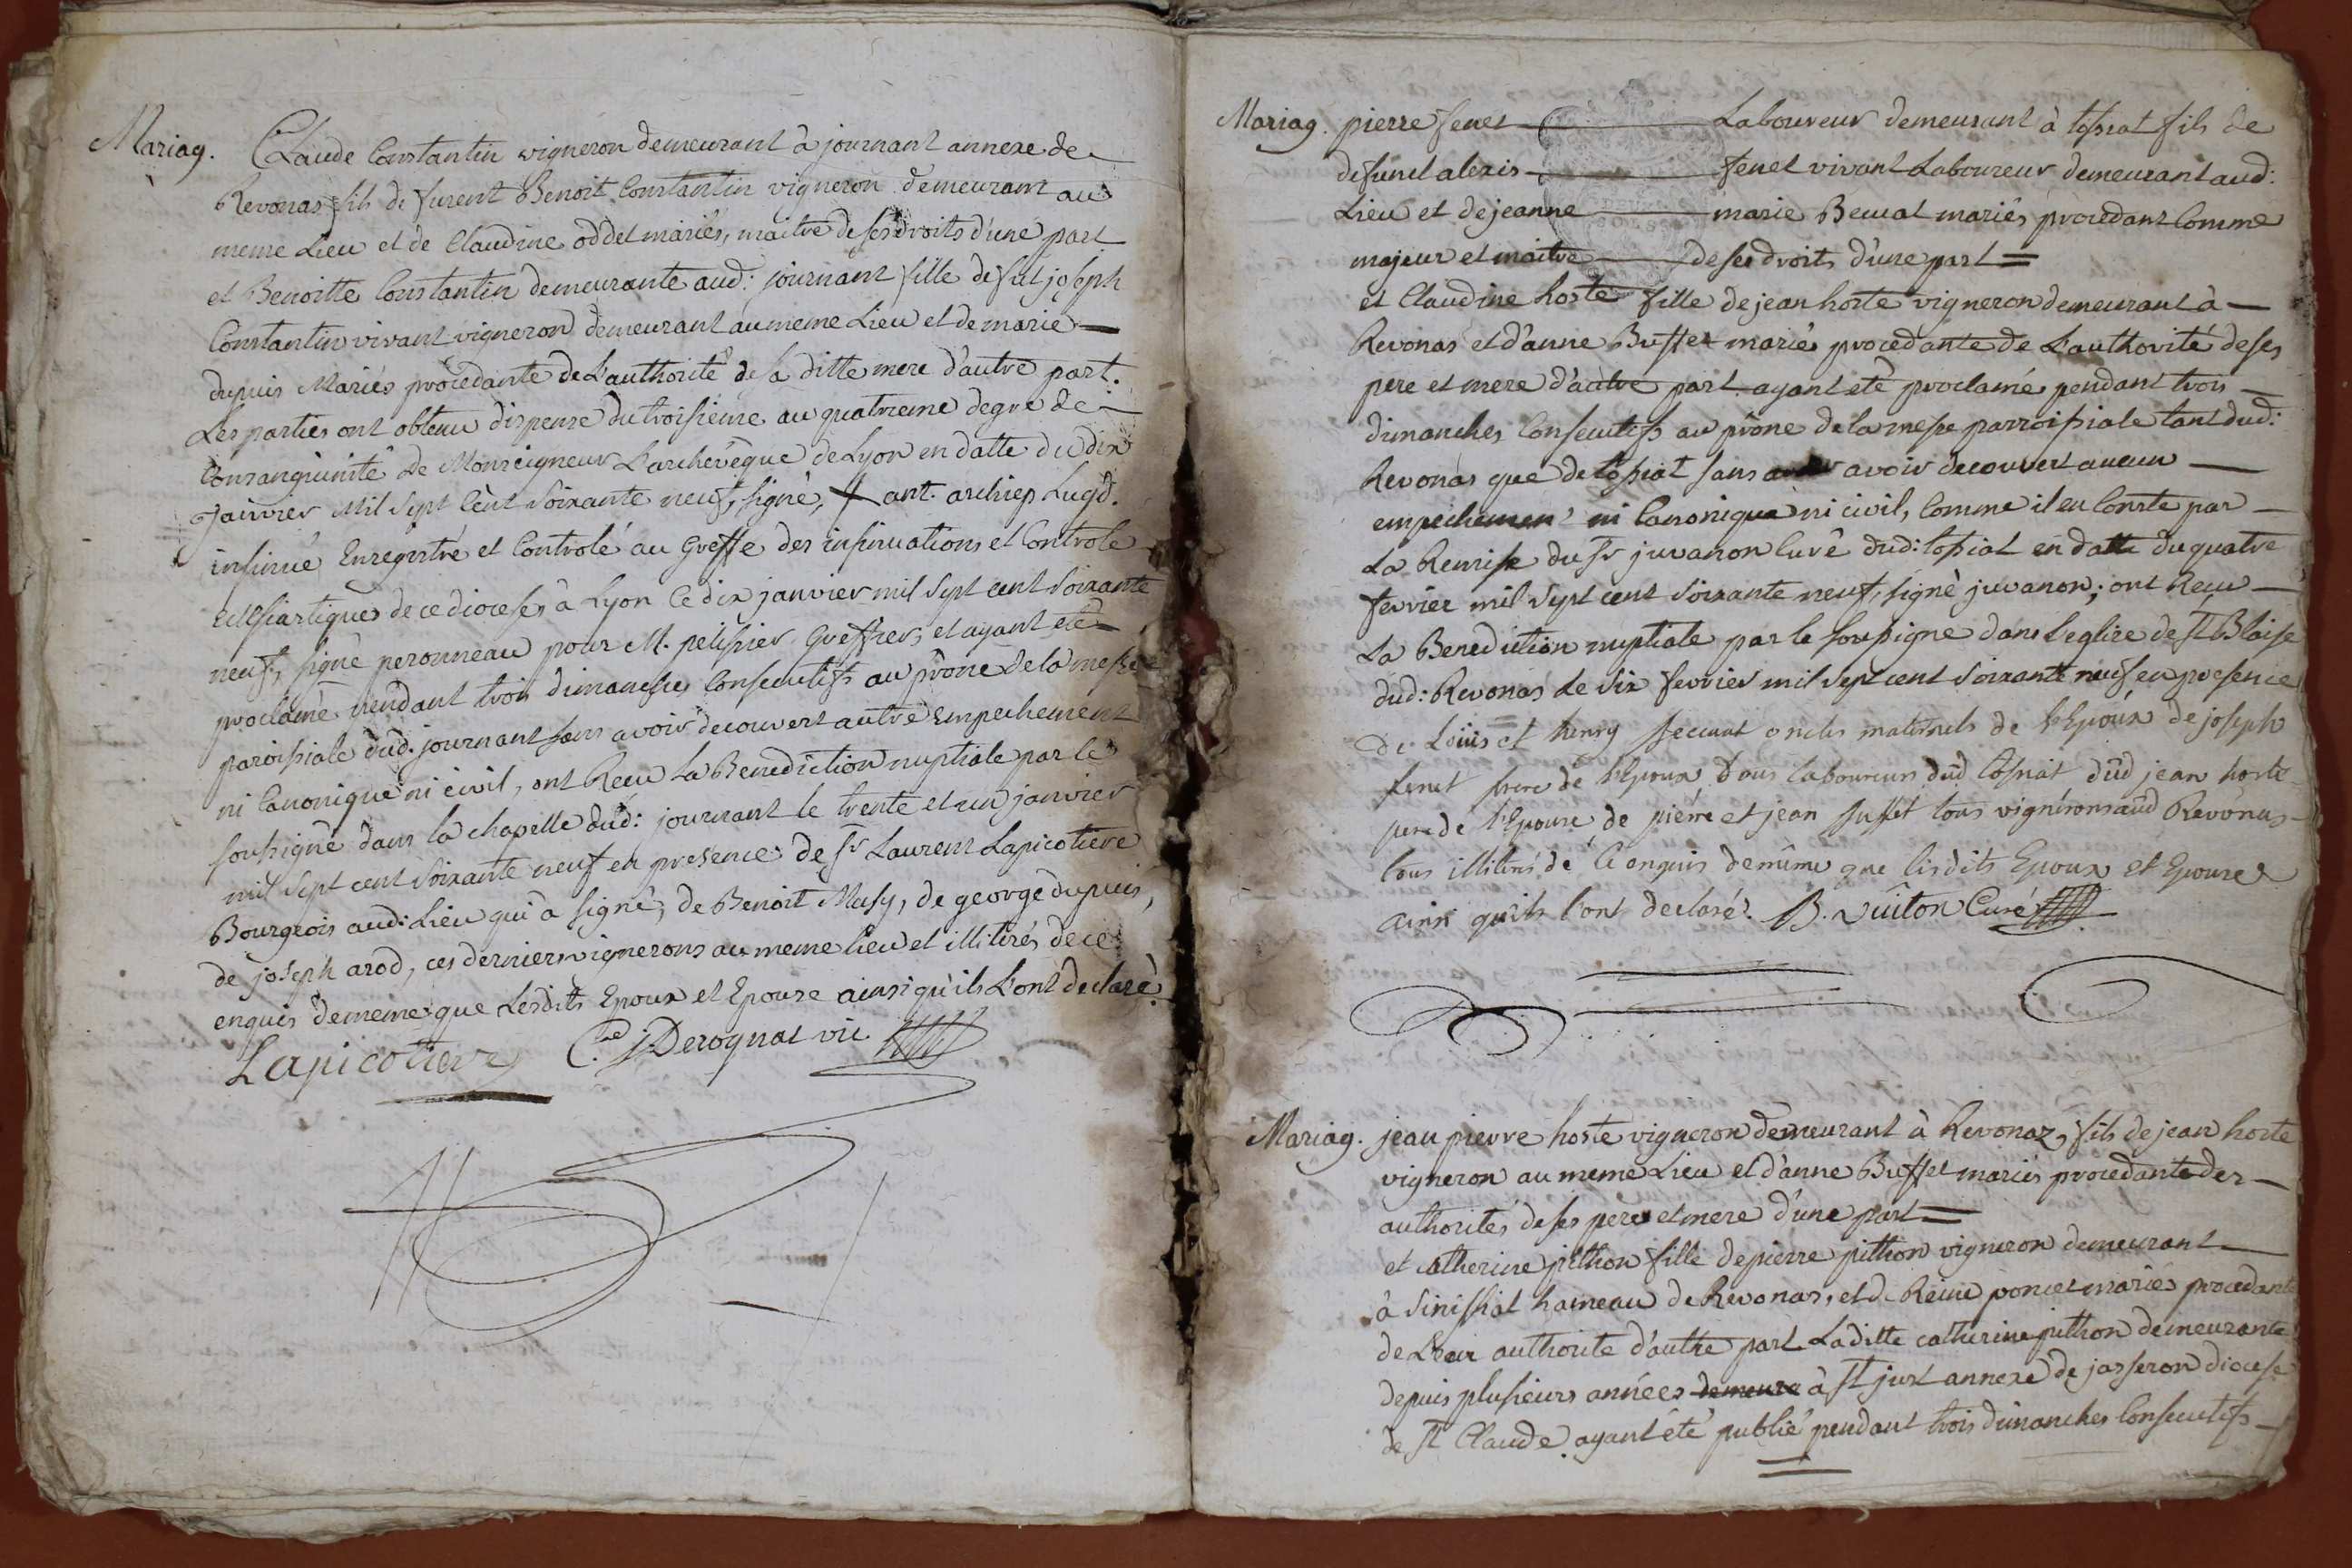 Mariag. Claude Constantin vigneron demeurant à journant annexe de
Revonas fils de furent Benoit Constantin vigneron demeurant au
meme Lieu et de Claudine oddet mariés, maitre de ses droits d'une part
et Benoitte Constantin demeurante aud: journant fille de fut joseph
Constantin vivant vigneron demeurant au meme Lieu et de marie
dupuis Mariés procedante de L'authorité de sa ditte mere d'autre part.
Les parties ont obtenu dispense du troisieme au quatrieme degre de
Consanguinité de Monseigneur L'archevêque de Lyon en datte du dix
Janvier Mil Sept Cent Soixante neuf, signé, ant. archiep Lugd.
insinué Enregistré et Controlé au Greffe des insinuations et Controle
Ecclésiastiques de ce diocese, à Lyon Ce dix janvier mil Sept cent Soixante
neuf, signé peronneau pour M. pelissier Greffier, et ayant eté
proclamé pendant trois dimanches Consecutifs au prône de la messe
paroissiale dud. journant sans avoir decouvert autre Empechement
ni Canonique ni civil, ont Reçu La Benediction nuptiale par le
soussigné dans la chapelle dud: journant le trente et un janvier
mil Sept cent Soixante neuf en presence de sr Laurent Lapicotiere
Bourgeois aud: Lieu qui a signé, de Benoit Musy, de george dupuis,
de joseph arod, ces derniers vignerons au meme lieu et illiterés de ce
enquis de meme que Lesdits Epoux et Epouse ainsi qu'ils L'ont declaré.
Lapicotiere C. J. Derognat vic
Mariag. pierre fenet Laboureur demeurant à tossiat fils de
defunct alexis fenet vivant Laboureur demeurant aud:
Lieu et de jeanne marie Becuat mariés, procedant Comme
majeur et maitre de ses droits d'une part =
et Claudine hoste fille de jean hoste vigneron demeurant à
Revonas et d'anne Buffet mariés procedante de L'authorité de ses
pere et mere d'autre part ayant eté proclamés pendant trois
dimanches Consecutifs au prône de la messe parroissiale tant dud:
Revonas que de tossiat sans avoir decouvert aucun
empechement ni Canonique ni civil, Comme il en Conste par
La Remise du Sr juvanon Curé dud: tossiat en datte du quatre
fevrier mil Sept cent Soixante neuf, signé juvanon; ont Reçu
La Benediction nuptiale par le soussigné dans l'eglise de St Blaise
dud: Revonas Le Six fevrier mil Sept cent Soixante neuf en presence
de Loüis et henry Becuat oncles maternels de l'Epoux de joseph
fenet frere de l'Epoux tous laboureurs dud tossiat dud jean hoste
pere de l'Epouse, de pierre et jean Buffet tous vignerons aud Revonas
tous illiterés de ce enquis de même que lesdits Epoux et Epouse
ainsi qu'ils l'ont declaré. B. Vuiton Curé
Mariag. jean pierre hoste vigneron demeurant à Revonaz, fils de jean hoste
vigneron au meme Lieu et d'anne Buffet mariés procedante des
authorités de ses pere et mere d'une part =
et catherine pithon fille de pierre pithon vigneron demeurant
à Sinissiat hameau de Revonas, et de Reine poncet mariés procedante
de Leur authorité d'autre part Laditte catherine pithon demeurante
depuis plusieurs années demeure à St just annexe de jasseron diocese
de St Claude ayant été publié pendant trois dimanches Consecutifs